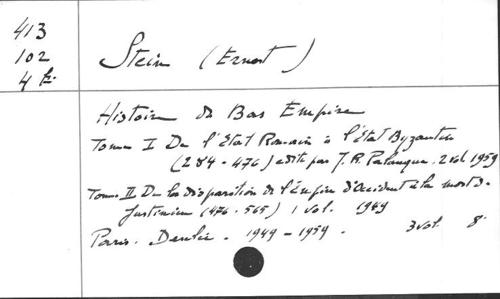 413
102
4 te
Stein (Ernest)
Histoire du Bas Empire
Tome I De l'Etat Romain à l'état Byzantin
(284-476) édité par J. R. Palanque. 2 vol 1959
Tome II De la disparition de l'Empire d'Occident à la mort de
Justinien (476-565) 1 vol. 1949
Paris. Desclée. 1949-1959. 3 vol. 8°